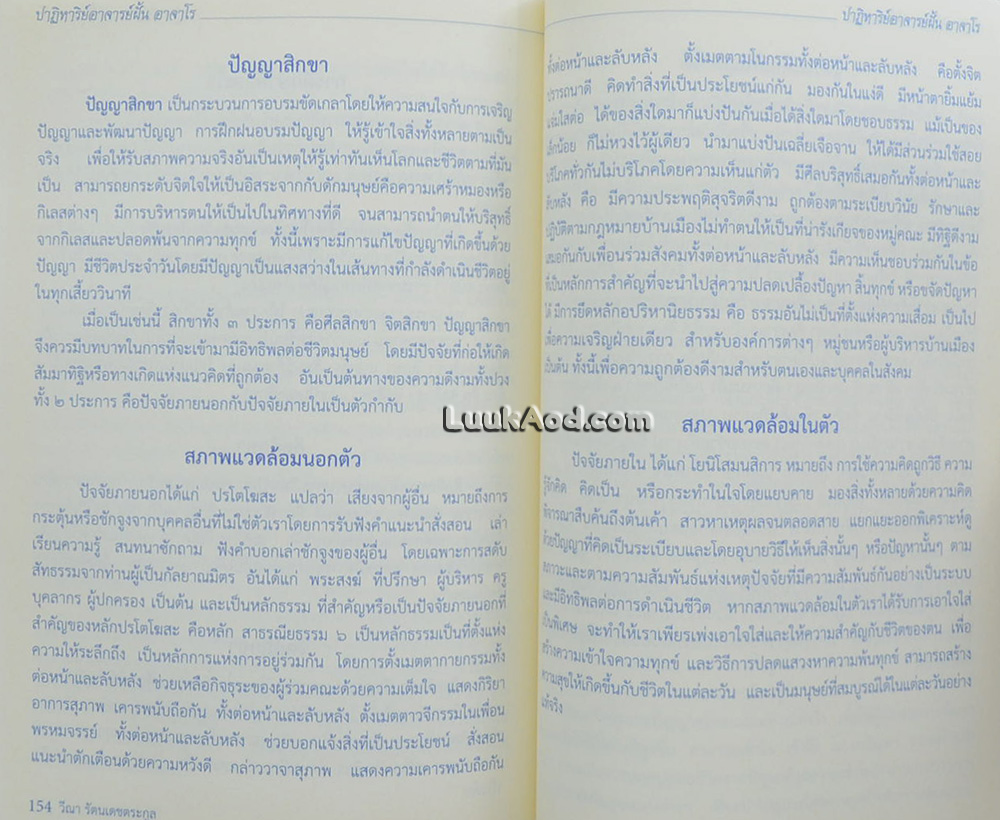 ปาฏิหาริย์อาจารย์ฝั้น อาจาโร
ปัญญาสิกขา
ปัญญาสิกขา เป็นกระบวนการอบรมขัดเกลาโดยให้ความสนใจกับการเจริญ
ปัญญาและพัฒนาปัญญา การฝึกฝนอบรมปัญญา ให้รู้เข้าใจสิ่งทั้งหลายตามเป็น
จริง เพื่อให้รับสภาพความจริงอันเป็นเหตุให้รู้เท่าทันเห็นโลกและชีวิตตามที่มัน
เป็น สามารถยกระดับจิตใจให้เป็นอิสระจากกับดักมนุษย์คือความเศร้าหมองหรือ
กิเลสต่างๆ มีการบริหารตนให้เป็นไปในทิศทางที่ดี จนสามารถนำตนให้บริสุทธิ์
จากกิเลสและปลอดพ้นจากความทุกข์ ทั้งนี้เพราะมีการแก้ไขปัญญาที่เกิดขึ้นด้วย
ปัญญา มีชีวิตประจำวันโดยมีปัญญาเป็นแสงสว่างในเส้นทางที่กำลังดำเนินชีวิตอยู่
ในทุกเสี้ยววินาที
เมื่อเป็นเช่นนี้ สิกขาทั้ง ๓ ประการ คือศีลสิกขา จิตสิกขา ปัญญาสิกขา
จึงควรมีบทบาทในการที่จะเข้ามามีอิทธิพลต่อชีวิตมนุษย์ โดยมีปัจจัยที่ก่อให้เกิด
สัมมาทิฐิหรือทางเกิดแห่งแนวคิดที่ถูกต้อง อันเป็นต้นทางของความดีงามทั้งปวง
ทั้ง ๒ ประการ คือปัจจัยภายนอกกับปัจจัยภายในเป็นตัวกำกับ
สภาพแวดล้อมนอกตัว
ปัจจัยภายนอกได้แก่ ปรโตโฆสะ แปลว่า เสียงจากผู้อื่น หมายถึงการ
กระตุ้นหรือชักจูงจากบุคคลอื่นที่ไม่ใช่ตัวเราโดยการรับฟังคำแนะนำสั่งสอน เล่า
เรียนความรู้ สนทนาซักถาม ฟังคำบอกเล่าชักจูงของผู้อื่น โดยเฉพาะการสดับ
สัทธรรมจากท่านผู้เป็นกัลยาณมิตร อันได้แก่ พระสงฆ์ ที่ปรึกษา ผู้บริหาร ครู
บุคลากร ผู้ปกครอง เป็นต้น และเป็นหลักธรรม ที่สำคัญหรือเป็นปัจจัยภายนอกที่
สำคัญของหลักปรโตโฆสะ คือหลัก สาธรณียธรรม ๖ เป็นหลักธรรมเป็นที่ตั้งแห่ง
ความให้ระลึกถึง เป็นหลักการแห่งการอยู่ร่วมกัน โดยการตั้งเมตตากายกรรมทั้ง
ต่อหน้าและลับหลัง ช่วยเหลือกิจธุระของผู้ร่วมคณะด้วยความเต็มใจ แสดงกิริยา
อาการสุภาพ เคารพนับถือกัน ทั้งต่อหน้าและลับหลัง ตั้งเมตตาวจีกรรมในเพื่อน
พรหมจรรย์ ทั้งต่อหน้าและลับหลัง ช่วยบอกแจ้งสิ่งที่เป็นประโยชน์ สั่งสอน
แนะนำตักเตือนด้วยความหวังดี กล่าววาจาสุภาพ แสดงความเคารพนับถือกัน
154 วีณา รัตนเดชตระกูล
ปาฏิหาริย์อาจารย์ฝั้น อาจาโร
ทั้งต่อหน้าและลับหลัง ตั้งเมตตามโนกรรมทั้งต่อหน้าและลับหลัง คือตั้งจิต
ปรารถนาดี คิดทำสิ่งที่เป็นประโยชน์แก่กัน มองกันในแง่ดี มีหน้าตายิ้มแย้ม
แจ่มใสต่อ ได้ของสิ่งใดมาก็แบ่งปันกันเมื่อได้สิ่งใดมาโดยชอบธรรม แม้เป็นของ
เล็กน้อย ก็ไม่หวงไว้ผู้เดียว นำมาแบ่งปันเฉลี่ยเจือจาน ให้ได้มีส่วนร่วมใช้สอย
บริโภคทั่วกันไม่บริโภคโดยความเห็นแก่ตัว มีศีลบริสุทธิ์เสมอกันทั้งต่อหน้าและ
ลับหลัง คือ มีความประพฤติสุจริตดีงาม ถูกต้องตามระเบียบวินัย รักษาและ
ปฏิบัติตามกฎหมายบ้านเมืองไม่ทำตนให้เป็นที่น่ารังเกียจของหมู่คณะ มีทิฐิดีงาม
เสมอกันกับเพื่อนร่วมสังคมทั้งต่อหน้าและลับหลัง มีความเห็นชอบร่วมกันในข้อ
ที่เป็นหลักการสำคัญที่จะนำไปสู่ความปลดเปลื้องปัญหา สิ้นทุกข์ หรือขจัดปัญหา
ได้ มีการยึดหลักอปริหานิยธรรม คือ ธรรมอันไม่เป็นที่ตั้งแห่งความเสื่อม เป็นไป
เพื่อความเจริญฝ่ายเดียว สำหรับองค์การต่างๆ หมู่ชนหรือผู้บริหารบ้านเมือง
เป็นต้น ทั้งนี้เพื่อความถูกต้องดีงามสำหรับตนเองและบุคคลในสังคม
LuukAod.com
สภาพแวดล้อมในตัว
ปัจจัยภายใน ได้แก่ โยนิโสมนสิการ หมายถึง การใช้ความคิดถูกวิธี ความ
รู้จักคิด คิดเป็น หรือกระทำในใจโดยแยบคาย มองสิ่งทั้งหลายด้วยความคิด
พิจารณาสืบค้นถึงต้นเค้า สาวหาเหตุผลจนตลอดสาย แยกแยะออกพิเคราะห์ดู
ด้วยปัญญาที่คิดเป็นระเบียบและโดยอุบายวิธีให้เห็นสิ่งนั้นๆ หรือปัญหานั้นๆ ตาม
สภาวะและตามความสัมพันธ์แห่งเหตุปัจจัยที่มีความสัมพันธ์กันอย่างเป็นระบบ
และมีอิทธิพลต่อการดำเนินชีวิต หากสภาพแวดล้อมในตัวเราได้รับการเอาใจใส่
เป็นพิเศษ จะทำให้เราเพียรเพ่งเอาใจใส่และให้ความสำคัญกับชีวิตของตน เพื่อ
สร้างความเข้าใจความทุกข์ และวิธีการปลดแสวงหาความพ้นทุกข์ สามารถสร้าง
ความสุขให้เกิดขึ้นกับชีวิตในแต่ละวัน และเป็นมนุษย์ที่สมบูรณ์ได้ในแต่ละวันอย่าง
แท้จริง